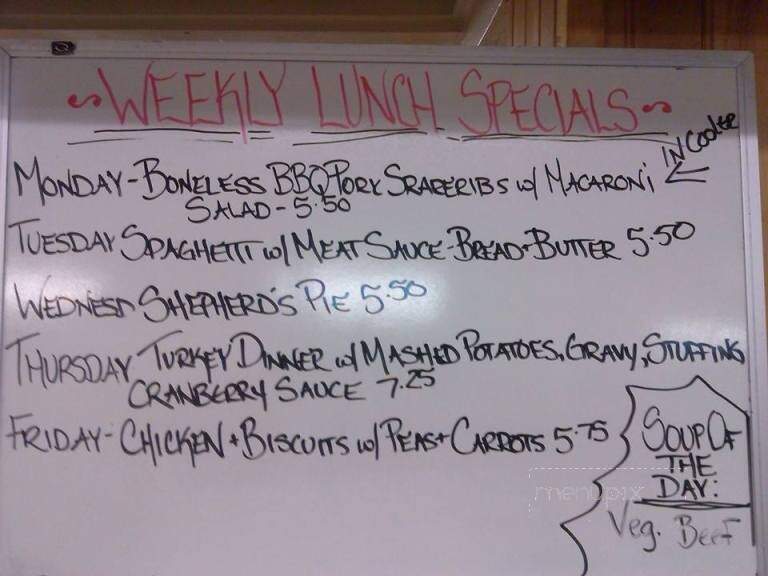 ~WEEKLY LUNCH SPECIALS~
IN Cooler
MONDAY-BONELESS BBQ PORK SPARERIBS w/ MACARONI
SALAD-5.50
TUESDAY SPAGHETTI w/ MEAT SAUCE-BREAD+BUTTER 5.50
WEDNESD SHEPHERD'S PIE 5.50
THURSDAY TURKEY DINNER w/ MASHED POTATOES, GRAVY, STUFFING
CRANBERRY SAUCE 7.25
FRIDAY-CHICKEN+BISCUITS w/ PEAS+CARROTS 5.75
SOUP OF
THE
DAY:
Veg. BEEF
menupix